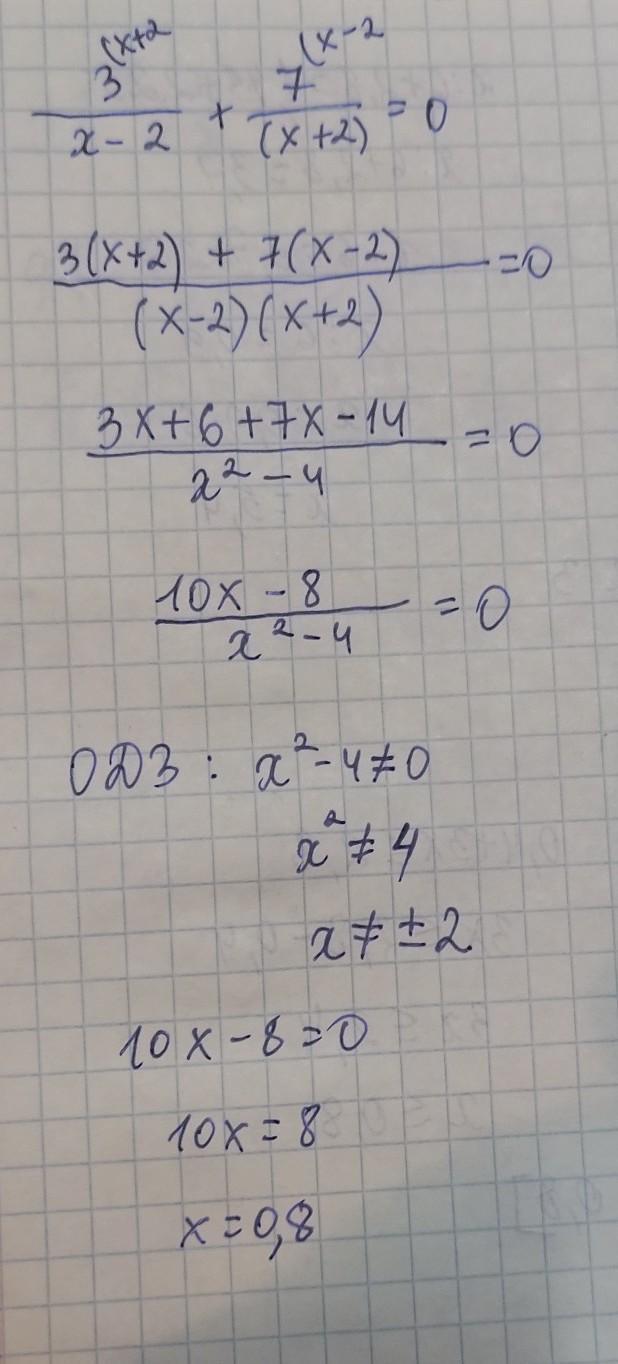 3^(x+2 / x-2 + 7^(x-2 / (x+2) = 0
3(x+2) + 7(x-2) / (x-2)(x+2) = 0
3x+6+7x-14 / x²-4 = 0
10x-8 / x²-4 = 0
ОДЗ: x²-4≠0
x²≠4
x≠±2
10x-8=0
10x=8
x=0,8